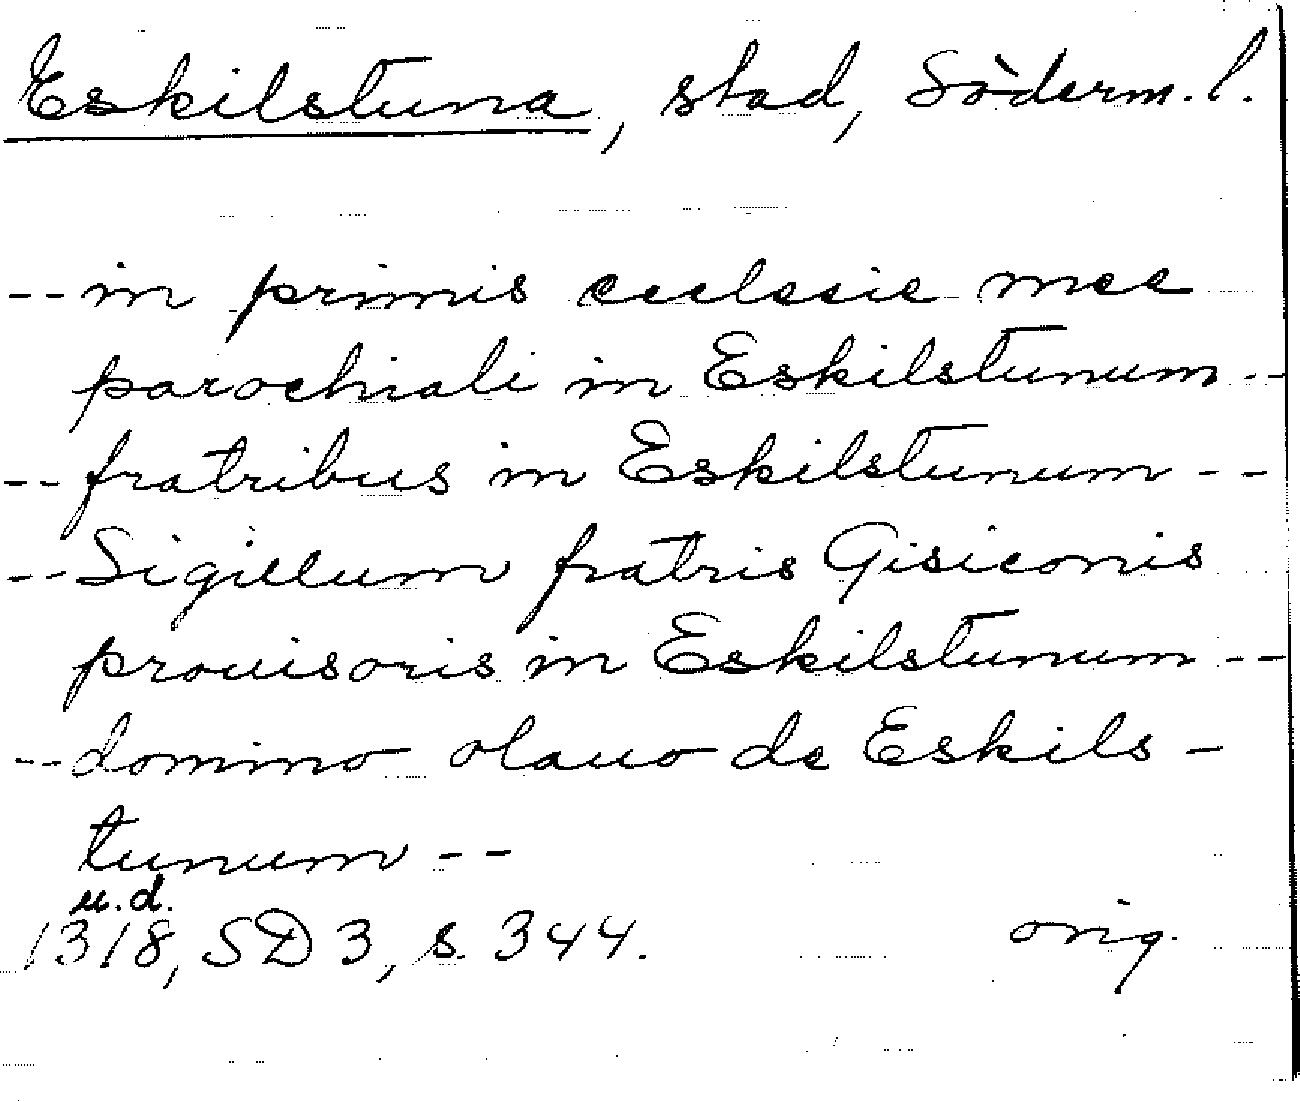 Eskilstuna, stad, Söderm. l.
-- in primis ecclesie mee
parochiali in Eskilstunum --
-- fratribus in Eskilstunum --
-- Sigillum fratris Gisiconis
prouisoris in Eskilstunum --
-- domino olauo de Eskils-
tunum --
u.d.
1318, SD 3, s. 344. orig.